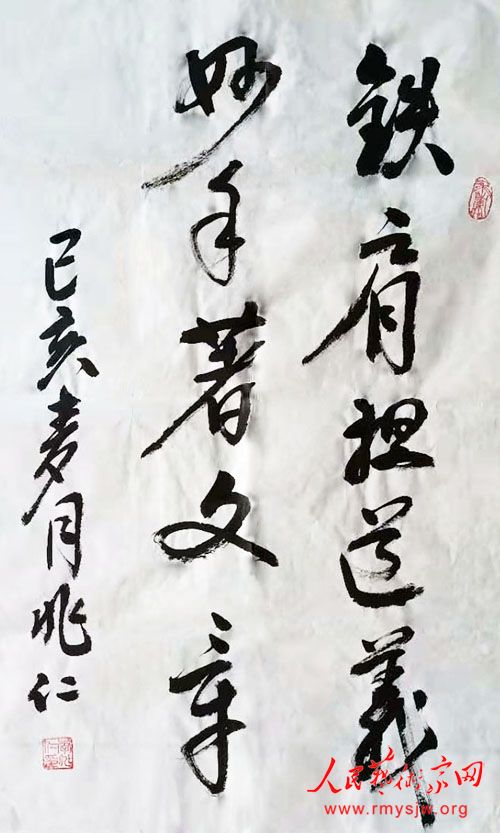 铁肩担道义
妙手著文章
己亥麦月兆仁
人民艺术家网
www.rmysjw.org